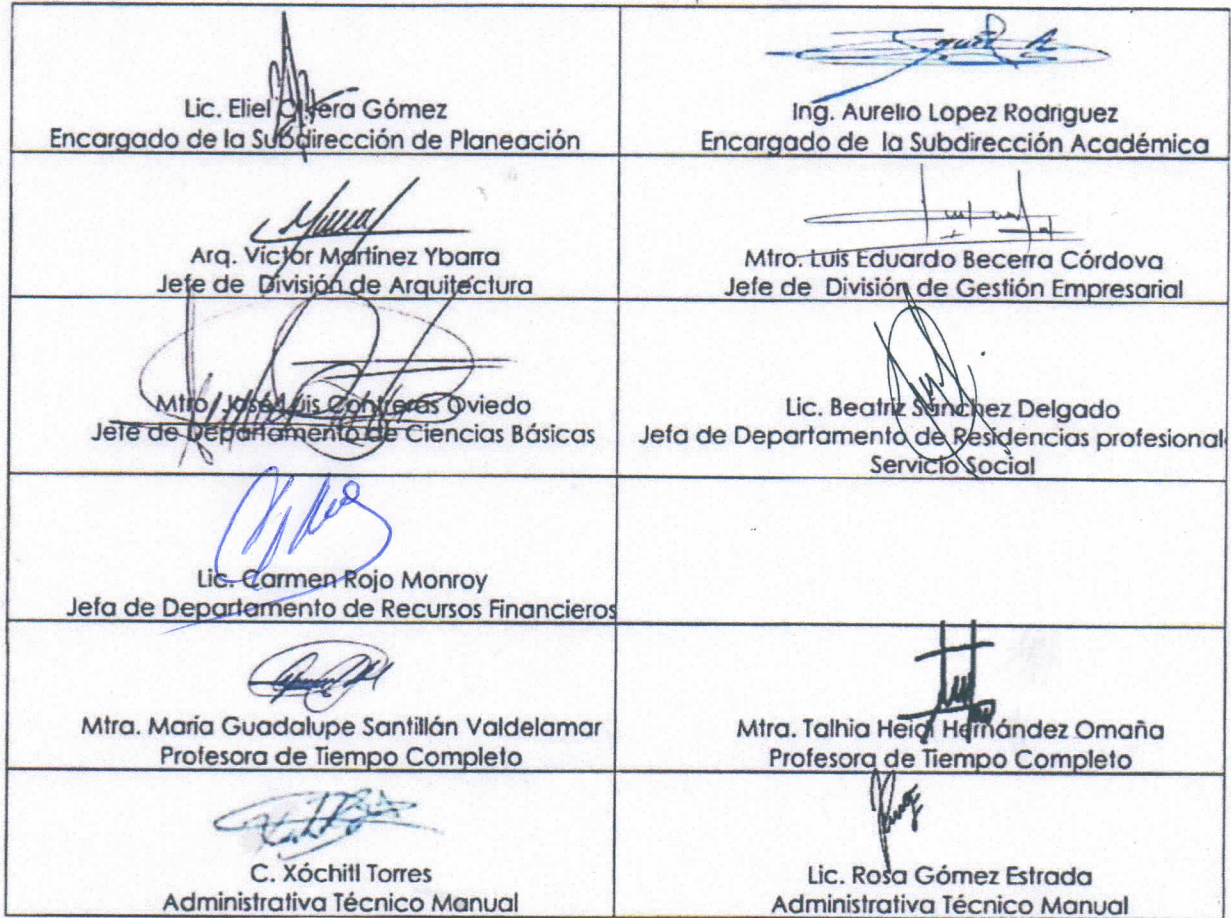 Lic. Eliel Olvera Gómez
Encargado de la Subdirección de Planeación
Ing. Aurelio Lopez Rodriguez
Encargado de la Subdirección Académica
Arq. Victor Martínez Ybarra
Jefe de División de Arquitectura
Mtro. Luis Eduardo Becerra Córdova
Jefe de División de Gestión Empresarial
Mtro. José Luis Contreras Oviedo
Jefe de Departamento de Ciencias Básicas
Lic. Beatriz Sánchez Delgado
Jefa de Departamento de Residencias profesional
Servicio Social
Lic. Carmen Rojo Monroy
Jefa de Departamento de Recursos Financieros
Mtra. María Guadalupe Santillán Valdelamar
Profesora de Tiempo Completo
Mtra. Talhia Heidi Hernández Omaña
Profesora de Tiempo Completo
C. Xóchitl Torres
Administrativa Técnico Manual
Lic. Rosa Gómez Estrada
Administrativa Técnico Manual